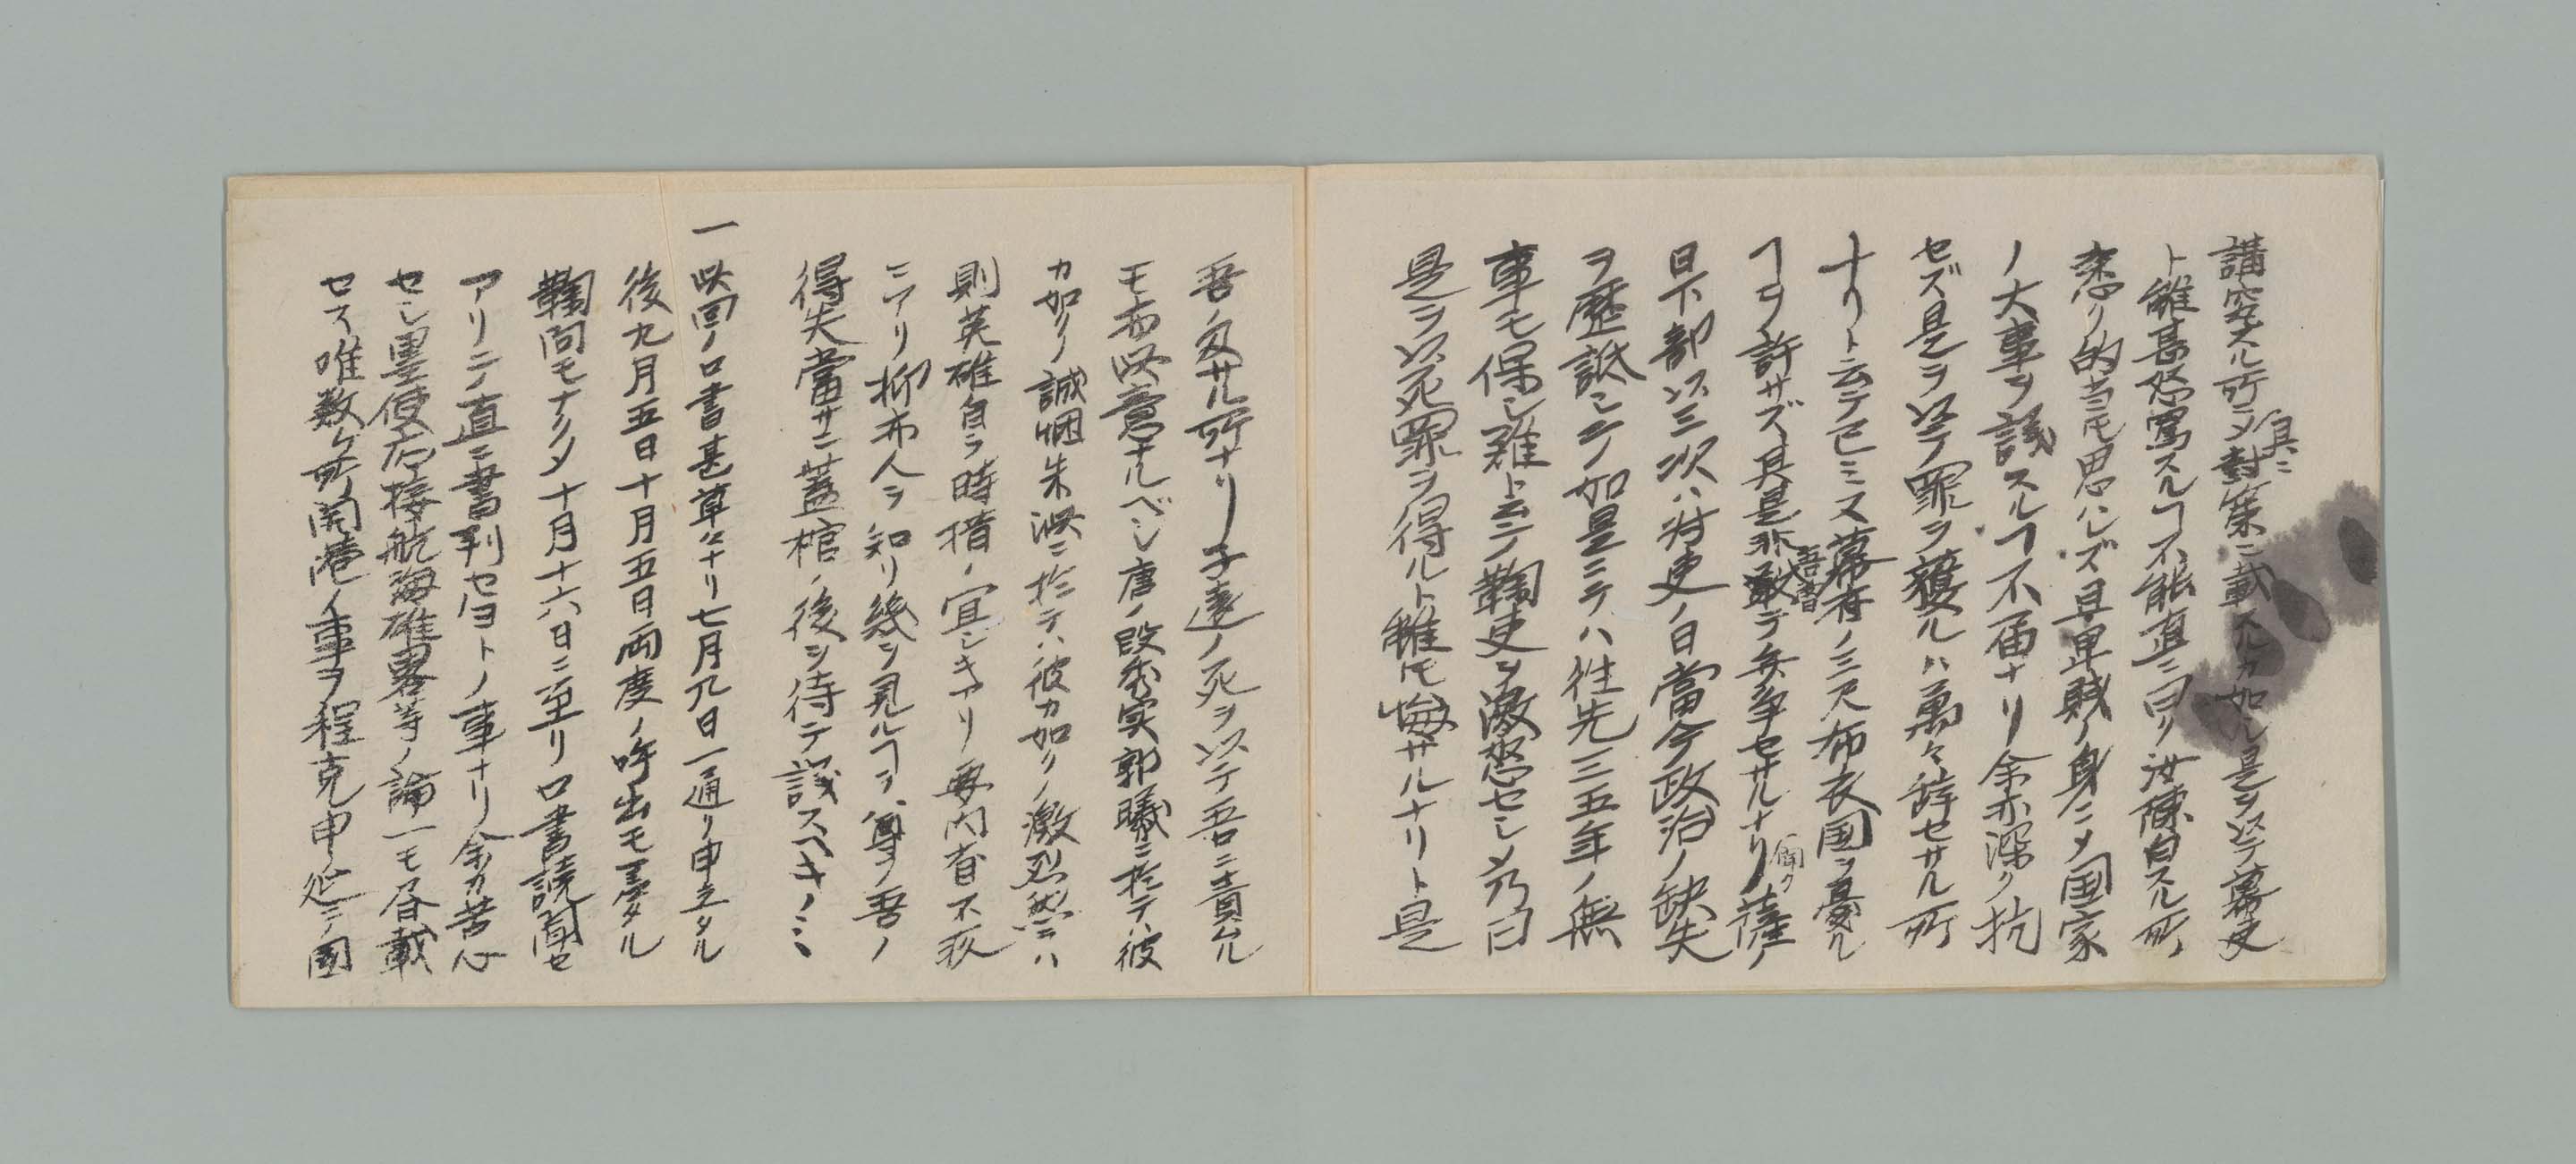 講究スル所ヲ具ニ對策ニ載スルカ如シ是ヲ以テ幕吏
ト雖甚怒罵スルヿ不能直ニ曰ク汝陳白スル所
悉ク的当トモ思ハレズ且卑賤ノ身ニメ国家
ノ大事ヲ議スルヿ不届ナリ余亦深ク抗
セズ是ヲ以テ罪ヲ獲ルハ萬々辞セサル所
ナリト云テ已ミヌ幕府ノ三尺布衣国ヲ憂ル
ヿヲ許サズ其是非吾曽テ弁争セサルナリ聞ク薩ノ
日下部以三次ハ対吏ノ日當今政治ノ缺失
ヲ歴詆シテ如是ニテハ往先三五年ノ無
事モ保シ難ト云テ鞠吏ヲ激怒セシメ乃曰
是ヲ以死罪ヲ得ルト雖モ悔サルナリト是
吾ノ及サル所ナリ子遠ノ死ヲ以テ吾ニ責ムル
モ亦此意ナルベシ唐ノ段秀実郭曦ニ於テハ彼
カ如クノ誠悃朱泚ニ於テハ彼カ如クノ激烈然ラハ
則英雄自ラ時措ノ宜シキアリ要内省不疚
ニアリ抑亦人ヲ知リ幾ヲ見ルヿヲ尊フ吾ノ
得失當サニ蓋棺ノ後ヲ待テ議スヘキノミ
一此回ノ口書甚草々ナリ七月九日一通リ申立タル
後九月五日十月五日両度ノ呼出モ差タル
鞠問モナクメ十月十六日ニ至リ口書読聞セ
アリテ直ニ書判セヨトノ事ナリ余カ苦心
セシ墨使応接航海雄略等ノ論一モ書載
セス唯数ヶ所開港ノ事ヲ程克申延テ国